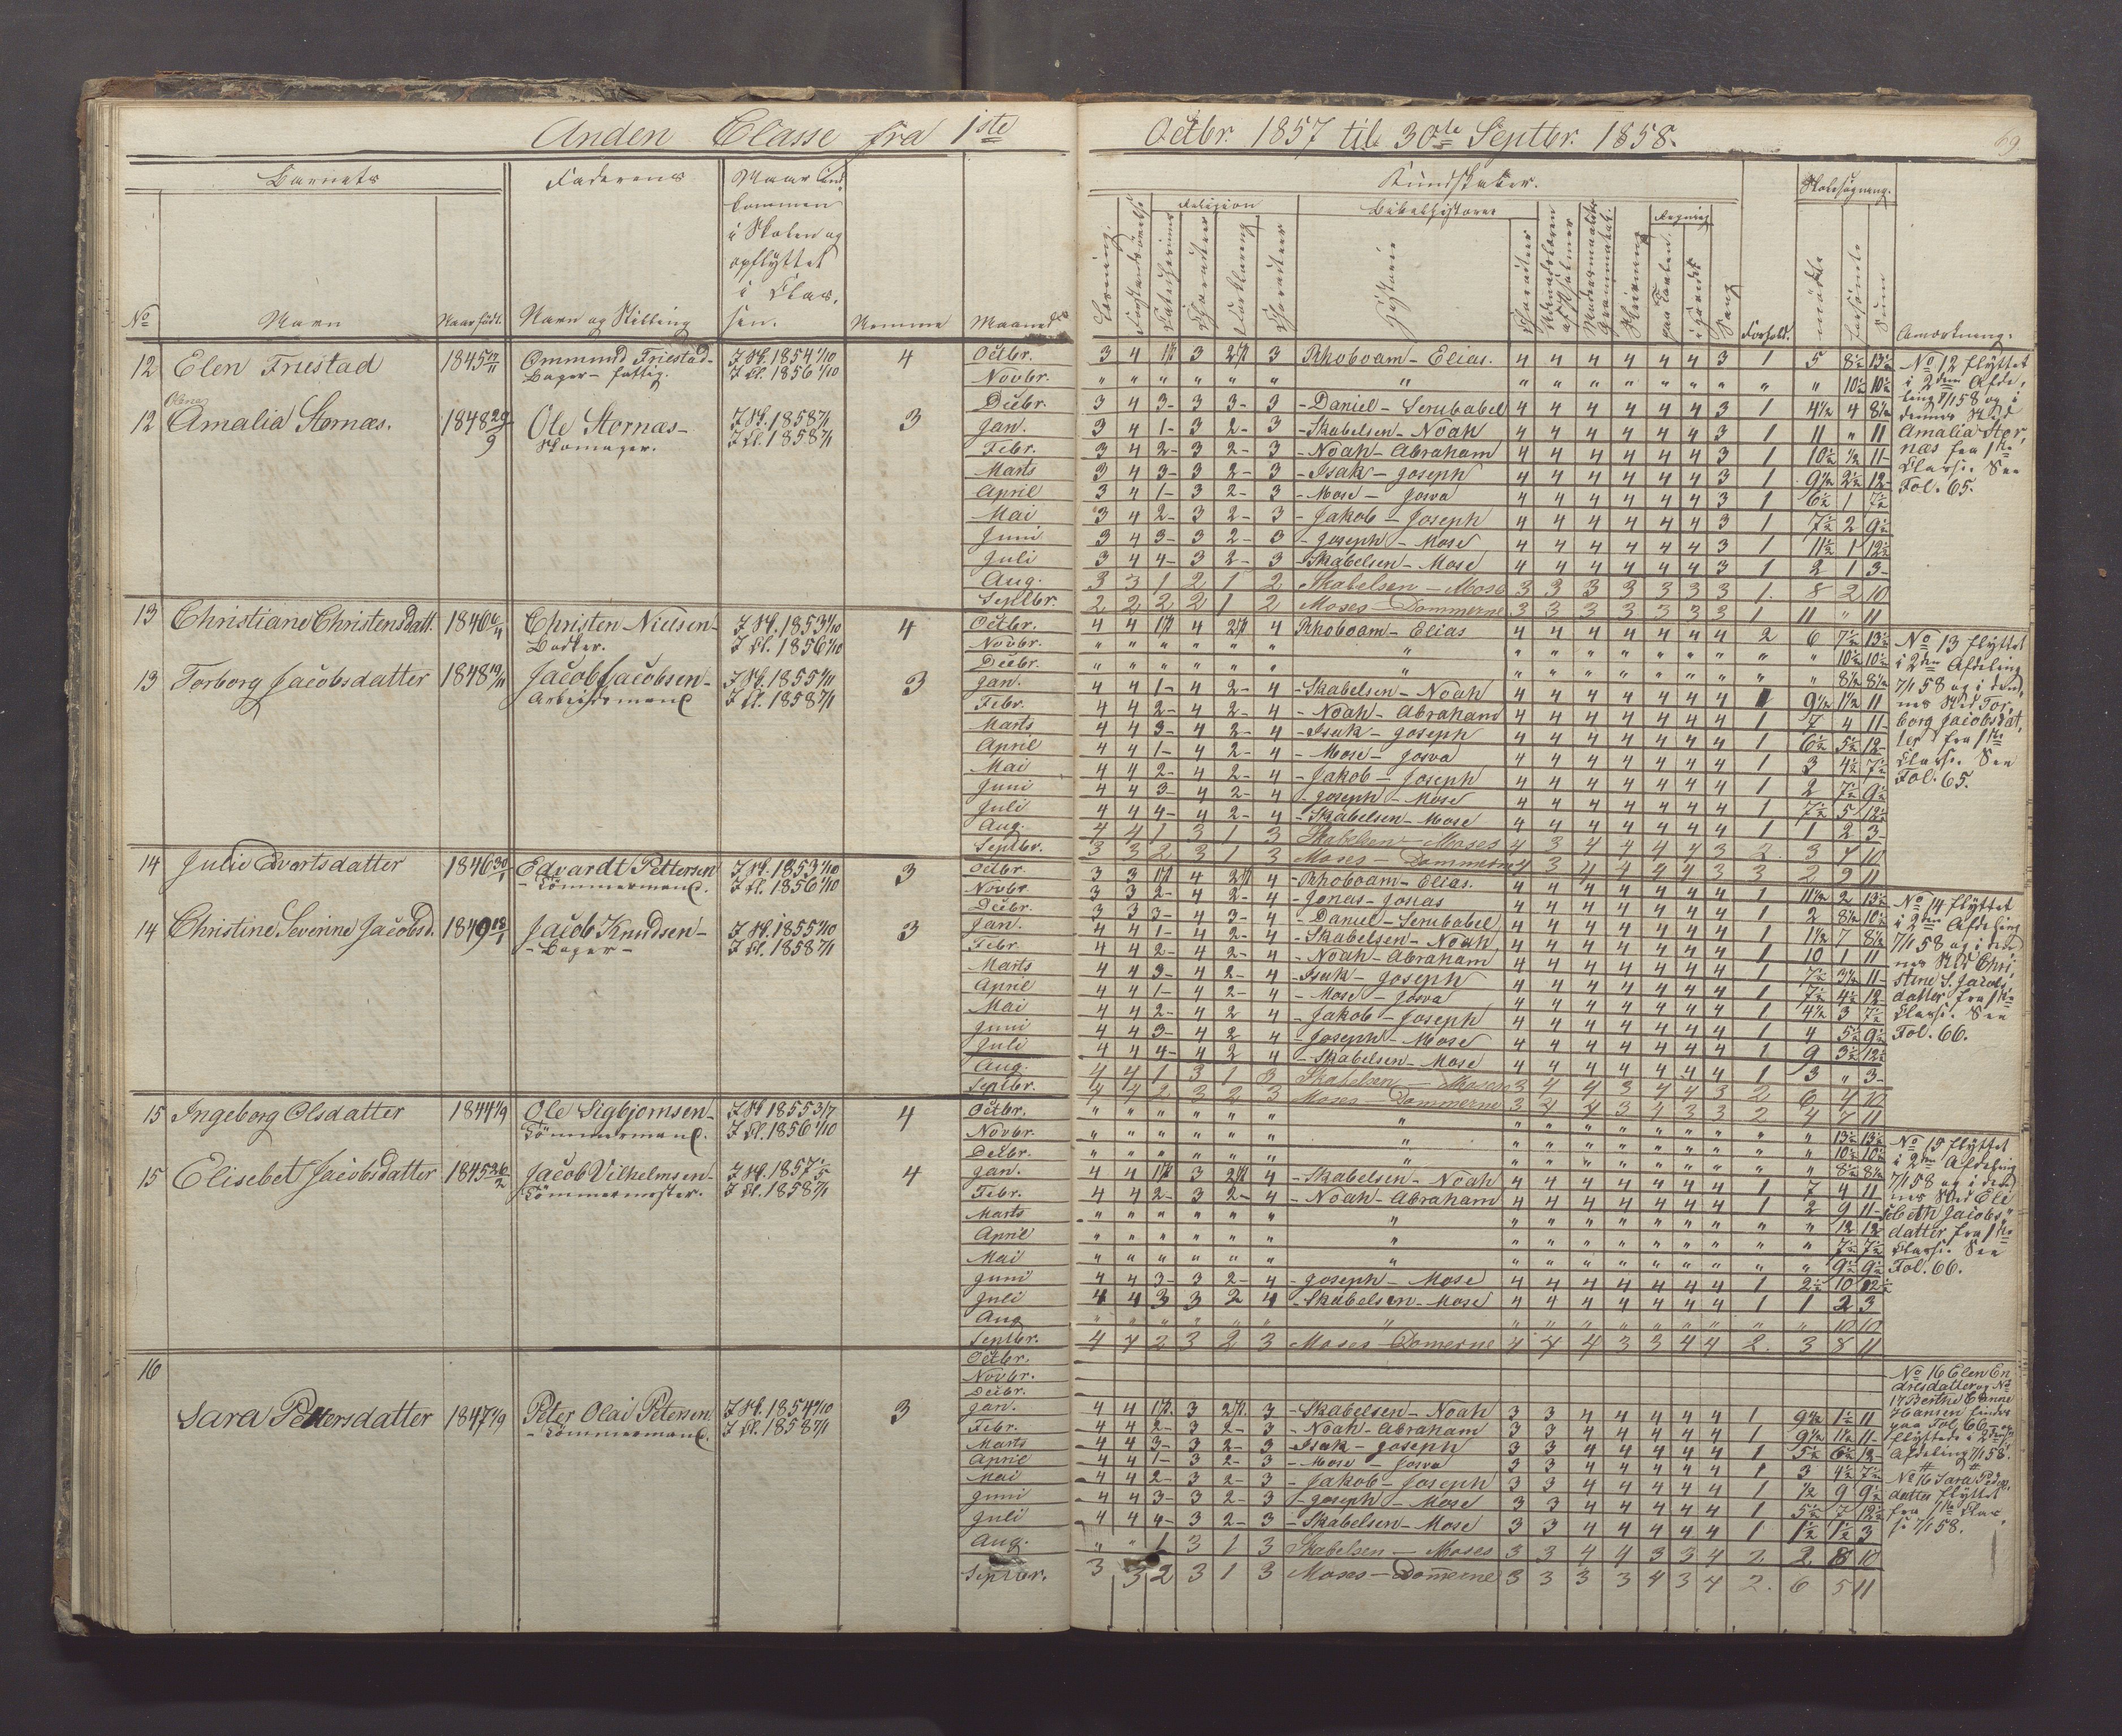 Anden Classe fra 1ste Octbr. 1857 til 30te Septbr. 1858.
69
Barnets
Faderens
Naar ind
kommen
i Skolen og
opflyttet
i Clas,
sen.
No
Navn
Naar født.
Navn og Stilling
Nemme
Maaned
Kundskaber.
Skolesøgning.
Religion
Bibelhistorie
Regning
Historie
Sang
Forhold.
mødte
forsømte
Sum
Anmærkning.
12 Elen Friestad 1845 17/11 Ommund Friestad- I Sk. 1854 1/10 4
Bager- fattig. I Cl. 1856 1/10
Olena
12 Amalia Stornæs. 1848 29/9 Ole Stornæs- I Sk. 1858 7/1 3
Skomager. I Cl. 1858 7/1
Octbr. 3 4 3 3 Rhoboam- Elias. 4 4 4 4 4 4 3 1 5 8½ 13½
Novbr. " " " " " " " " " " " " " " " " " 10½ 10½
Decbr. 3 4 3- 3 3- 3 -Daniel- Serubabel 4 4 4 4 4 4 3 1 4½ 4 8½
Jan. 3 4 1- 3 2- 3 -Skabelsen- Noah 4 4 4 4 4 4 3 1 11 " 11
Febr. 3 4 2- 3 2- 3 -Noah- Abraham 4 4 4 4 4 4 3 1 10½ ½ 11-
Marts 3 4 3- 3 2- 3 -Isak- Joseph 4 4 4 4 4 4 3 1 9½ 2½ 12-
April 3 4 1- 3 2- 3 -Mose- Josva 4 4 4 4 4 4 3 1 6½ 1 7½
Mai 3 4 2- 3 2- 3 -Jakob- Joseph 4 4 4 4 4 4 3 1 7½ 2 9½
Juni 3 4 3- 3 2- 3 -Joseph- Mose 4 4 4 4 4 4 3 1 11½ 1 12½
Juli 3 4 4- 3 2- 3 -Skabelsen- Mose 4 4 4 4 4 4 3 1 2 1 3-
Aug. 3 3 1 2 1 2 Skabelsen- Mose 3 3 3 3 3 3 3 1. 8 2 10
Septbr. 2 2 2 2 1 2 Moses- Dommerne 3 3 3 3 3 3 3 1 11 " 11
No 12 flyttet
i 2den Afde,
ling 7/1 58 og i
dennes Sted
Amalia Stor,
næs fra 1ste
Classe. See
Fol. 65.
13 Christiane Christensdatt. 1846 Christen Nielsen- I Sk. 1853 1/10 4
Bødker. I Cl. 1856 1/10
13 Torborg Jacobsdatter 1848 19/11 Jacob Jacobsen- I Sk. 1855 I Cl. 1858 7/1 3
Arbeidsmand
Octbr. 4 4 4 4 Rhoboam- Elias 4 4 4 4 4 4 4 2 6 7½ 13½
Novbr. " " " " " " " " " " " " " " " " 10½ 10½
Decbr. " " " " " " " " " " " " " " " " 8½ 8½
Jan. 4 4 1- 4 2- 4 -Skabelsen- Noah 4 4 4 4 4 4 4 1 9½ 1½ 11
Febr. 4 4 2- 4 2- 4 -Noah- Abraham 4 4 4 4 4 4 4 1 7 4 11-
Marts 4 4 3- 4 2- 4 -Isak- Joseph 4 4 4 4 4 4 4 1 6½ 5½ 12-
April 4 4 1- 4 2- 4 -Mose- Josva 4 4 4 4 4 4 4 1 3 4½ 7½
Mai 4 4 2- 4 2- 4 -Jakob- Joseph 4 4 4 4 4 4 4 1 2 7½ 9½
Juni 4 4 3- 4 2- 4 -Joseph- Mose 4 4 4 4 4 4 4 1 7½ 5 12½
Juli 4 4 4- 4 2- 4 -Skabelsen- Mose 4 4 4 4 4 4 4 1 1 2 3-
Aug. 4 4 1 3 1 3 Skabelsen- Moses 4 3 4 4 4 4 3 2. 3 7 10
Septbr. 3 3 2 3 1 3 Moses- Dommerne 4 3 4 4 4 4 3 3 2 9 11
No 13 flyttet
i 2den Afdeling
7/1 58 og i den,
nes Sted Tor,
borg Jacobsdat,
ter fra 1ste
Classe. See
Fol. 65.
14 Julie Edvartsdatter 1846 30/1 Edvardt Pettersen I Sk. 1853 1/10 3
-Tømmermand. I Cl. 1856 1/10
14 Christine Severine Jacobsd. 1849 18/1 Jacob Knudsen- I Sk. 1855 1/10 3
-Bager- I Cl. 1858 7/1
Octbr. 3 3 4 4 -Rhoboam- Elias. 4 4 4 4 4 4 4 1 11½ 2 13½
Novbr. 3 3 2- 4 2- 4 -Jonas- Josias 4 4 4 4 4 4 4 1 2 8½ 10½
Decbr. 3 3 3- 4 3- 4 -Daniel- Serubabel 4 4 4 4 4 4 4 1 1½ 7 8½
Jan. 4 4 1- 4 2- 4 -Skabelsen- Noah 4 4 4 4 4 4 4 1 10 1 11
Febr. 4 4 2- 4 2- 4 -Noah- Abraham 4 4 4 4 4 4 4 1 7½ 3½ 11-
Marts 4 4 3- 4 2- 4 -Isak- Joseph 4 4 4 4 4 4 4 1 7½ 4½ 12-
April 4 4 1- 4 2- 4 -Mose- Josva 4 4 4 4 4 4 4 1 4½ 3 7½
Mai 4 4 2- 4 2 4 -Jakob- Joseph 4 4 4 4 4 4 4 1 4 5½ 9½
Juni 4 4 3- 4 2 4 -Joseph- Mose 4 4 4 4 4 4 4 1 9 3½ 12½
Juli 4 4 4- 4 2 4 -Skabelsen- Mose 4 4 4 4 4 4 4 1 3 " 3-
Aug. 4 4 1 3 1 3 Skabelsen- Moses 3 4 4 3 4 4 3 2 6 4 10
Septbr. 4 4 2 3 2 3 Moses- Dommerne 3 4 4 3 4 3 3 2 4 7 11
No 14 flyttet
i 2den Afdeling
7/1 58 og i den
nes Sted Chri,
stine S. Jacobs,
datter fra 1ste
Classe. See
Fol. 66.
15 Ingeborg Olsdatter 1844 1/9 Ole Sigbjørnsen- I Sk 1855 3/7 4
Tømmermand. I Cl. 1856 1/10
15 Elisebet Jacobsdatter 1845 26/2 Jacob Vilhelmsen- I Sk. 1857 1/5 4
Tømmermester. I Cl. 1858 7/1
Octbr. " " " " " " " " " " " " " " " " 13½ 13½
Novbr. " " " " " " " " " " " " " " " " 10½ 10½
Decbr. " " " " " " " " " " " " " " " " 8½ 8½
Jan. 4 4 3 4 -Skabelsen- Noah 4 4 4 4 4 4 4 1 7 4 11
Febr. 4 4 2- 3 2- 4 -Noah- Abraham 4 4 4 4 4 4 4 1 2 9 11-
Marts " " " " " " " " " " " " " " " " 12 12-
April " " " " " " " " " " " " " " " " 7½ 7½
Mai " " " " " " " " " " " " " " " " 9½ 9½
Juni 4 4 3- 3 2- 4 -Joseph- Mose 4 4 4 4 4 4 4 1 2½ 10 12½
Juli 4 4 3 3 2 4 -Skabelsen- Mose 4 4 4 4 4 4 4 1 1 2 3
Aug " " " " " " " " " " " " " " " " 10 10
Septbr. 4 4 2 3 2 3 Moses Domerne 4 4 4 3 3 4 4 2. 3 8 11
No 15 flyttet
i 2den Afdeling
7/1 58 og i den
nes Sted Eli
sebeth Jacobs"
datter fra 1ste
Classe. See
Fol. 66.
16
Sara Pettersdatter 1847 1/9 Peter Olai Petersen. I Sk. 1854 I Cl. 1858 7/1 3
-Tømmermand.
Octbr.
Novbr.
Decbr.
Jan. 4 4 3 3 -Skabelsen- Noah 3 3 4 4 4 4 4 1 9½ 1½ 11
Febr. 4 4 2- 3 2- 3 -Noah- Abraham 3 3 4 4 4 4 4 1 9½ 1½ 11-
Marts 4 4 3- 3 2- 3 -Isak- Joseph 3 3 4 4 4 4 4 1 5½ 6½ 12-
April 4 4 1- 3 2- 3 -Mose- Josva 3 3 4 4 4 4 4 1 3 4½ 7½
Mai 4 4 2- 3 2- 3 -Jakob- Joseph 3 3 4 4 4 4 4 1 ½ 9 9½
Juni 4 4 3- 3 2- 3 -Joseph- Mose 3 3 4 4 4 4 4 1 5½ 7 12½
Juli 4 4 4- 3 2- 3 -Skabelsen- Mose 3 3 4 4 4 4 4 1 1½ 1½ 3
Aug. " " 1 3 1 3 Skabelsen- Moses 3 3 4 4 3 3 4 2. 2 8 10
Septbr. 3 3 2 3 1 3 Moses- Domerne 3 3 3 3 4 3 4 2. 6 5 11
No 16 Elen En
dresdatter og No
17 Berthe
Hansen findes
paa Fol. 66 og
flyttede i 2den
Afdeling 7/1 58.
No 16 Sara Peders,
datter flyttet
fra 1ste Clas,
se 7/1 58.